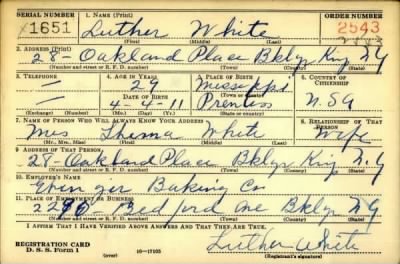 SERIAL NUMBER 1. NAME (Print) ORDER NUMBER
1651 Luther White 2543
(First) (Middle) (Last)
2. ADDRESS (Print)
28- Oakland Place Bklyn King N.Y
(Number and street or R. F. D. number) (Town) (County) (State)
3. TELEPHONE 4. AGE IN YEARS 5. PLACE OF BIRTH 6. COUNTRY OF CITIZENSHIP
— 29 Mississippi
DATE OF BIRTH (Town or county)
— 4-4-11 Prentiss U.S.A
(Exchange) (Number) (Mo.) (Day) (Yr.) (State or country)
7. NAME OF PERSON WHO WILL ALWAYS KNOW YOUR ADDRESS 8. RELATIONSHIP OF THAT PERSON
Mrs Thelma White Wife
(Mr., Mrs., Miss) (First) (Middle) (Last)
9. ADDRESS OF THAT PERSON
28-Oakland Place Bklyn King N.Y
(Number and street or R. F. D. number) (Town) (County) (State)
10. EMPLOYER'S NAME
Baking Co
11. PLACE OF EMPLOYMENT OR BUSINESS
2290 Bedford Ave Bklyn N.Y
(Number and street or R. F. D. number) (Town) (County) (State)
I AFFIRM THAT I HAVE VERIFIED ABOVE ANSWERS AND THAT THEY ARE TRUE.
REGISTRATION CARD
D. S. S. Form 1 (over) 16-17105
Luther White
(Registrant's signature)